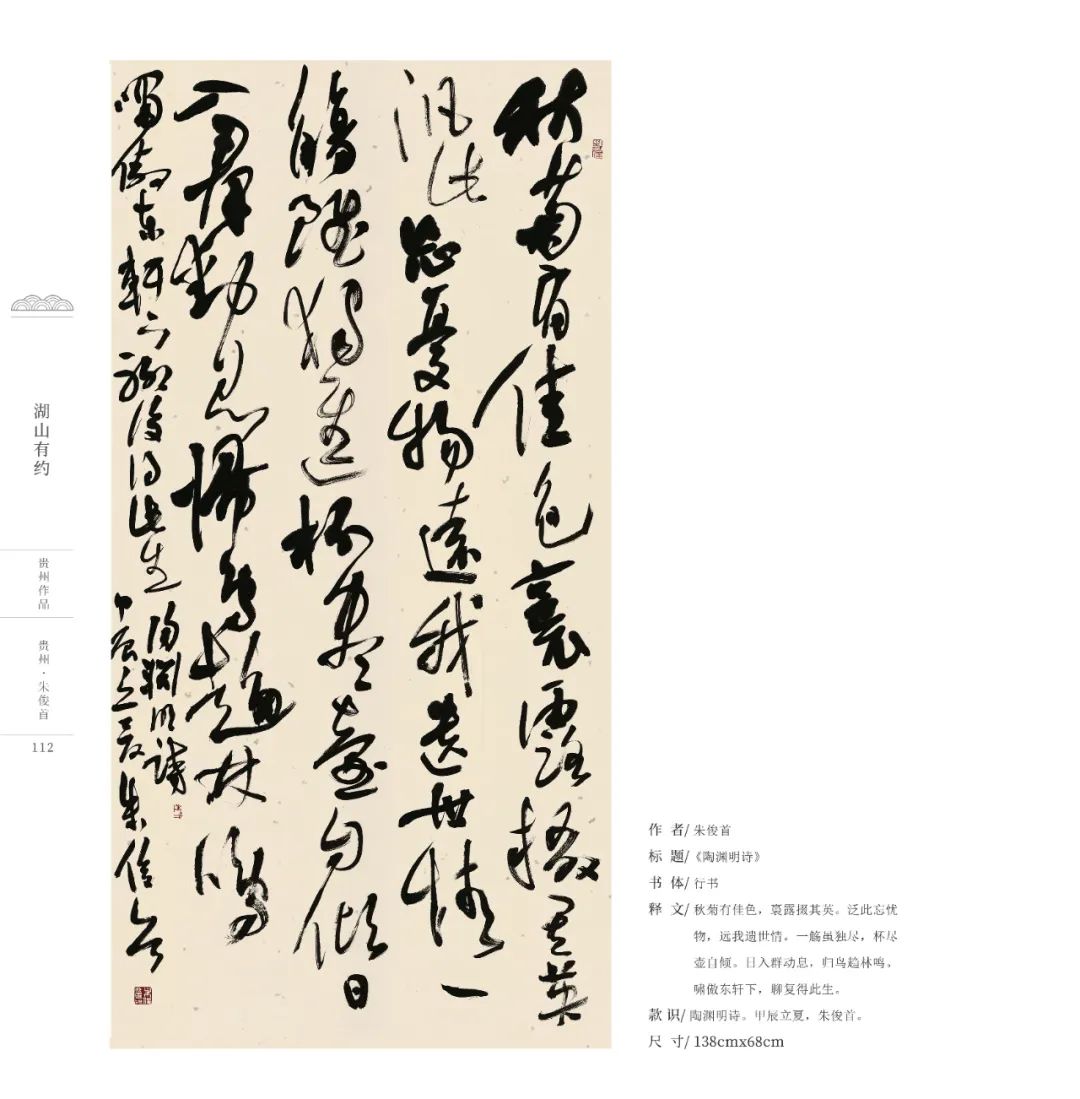 秋菊有佳色裛露掇其英
汎此忘憂物遠我遺世情一
觴雖獨進杯盡壺自傾日
入羣動息歸鳥趨林鳴
嘯傲東軒下聊復得此生
陶淵明詩
甲辰立夏朱俊首
湖山有约
贵州作品
贵州·朱俊首
112
作 者/ 朱俊首
标 题/《陶渊明诗》
书 体/ 行书
释 文/ 秋菊有佳色，裛露掇其英。泛此忘忧
物，远我遗世情。一觞虽独尽，杯尽
壶自倾。日入群动息，归鸟趋林鸣。
啸傲东轩下，聊复得此生。
款 识/ 陶渊明诗。甲辰立夏，朱俊首。
尺 寸/ 138cmx68cm